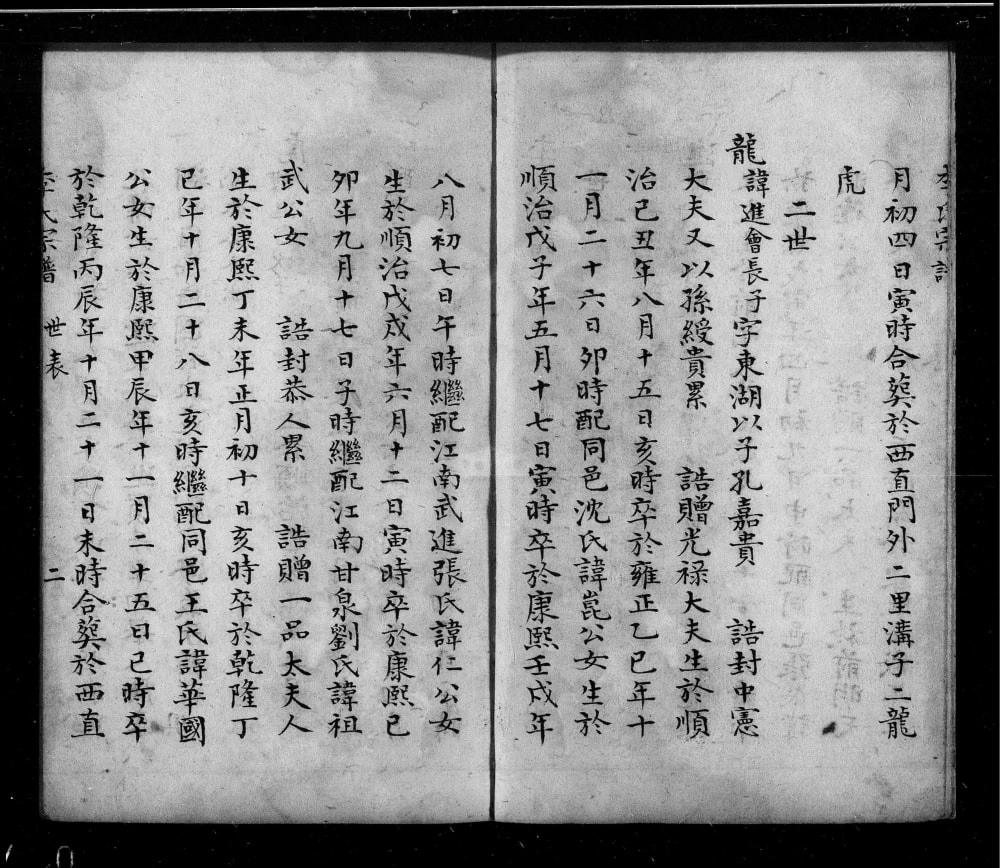 李氏宗譜
月初四日寅時合葬於西直門外二里溝子二龍
虎
二世
龍諱進會長子字東湖以子孔嘉貴　誥封中憲
大夫又以孫綬貴累　誥贈光祿大夫生於順
治己丑年八月十五日亥時卒於雍正乙巳年十
一月二十六日卯時配同邑沈氏諱崑公女生於
順治戊子年五月十七日寅時卒於康熙壬戌年
八月初七日午時繼配江南武進張氏諱仁公女
生於順治戊戌年六月十二日寅時卒於康熙己
卯年九月十七日子時繼配江南甘泉劉氏諱祖
武公女　誥封恭人累　誥贈一品太夫人
生於康熙丁未年正月初十日亥時卒於乾隆丁
巳年十月二十八日亥時繼配同邑王氏諱華國
公女生於康熙甲辰年十一月二十五日己時卒
於乾隆丙辰年十月二十一日未時合葬於西直
李氏宗譜　世表　二